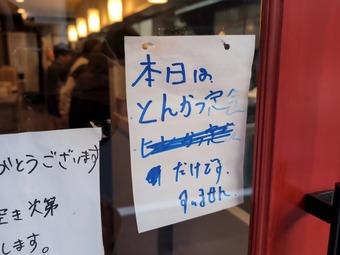 本日は、
とんかつ定食
だけです。
すいません
がとうございます
空き次第
します。